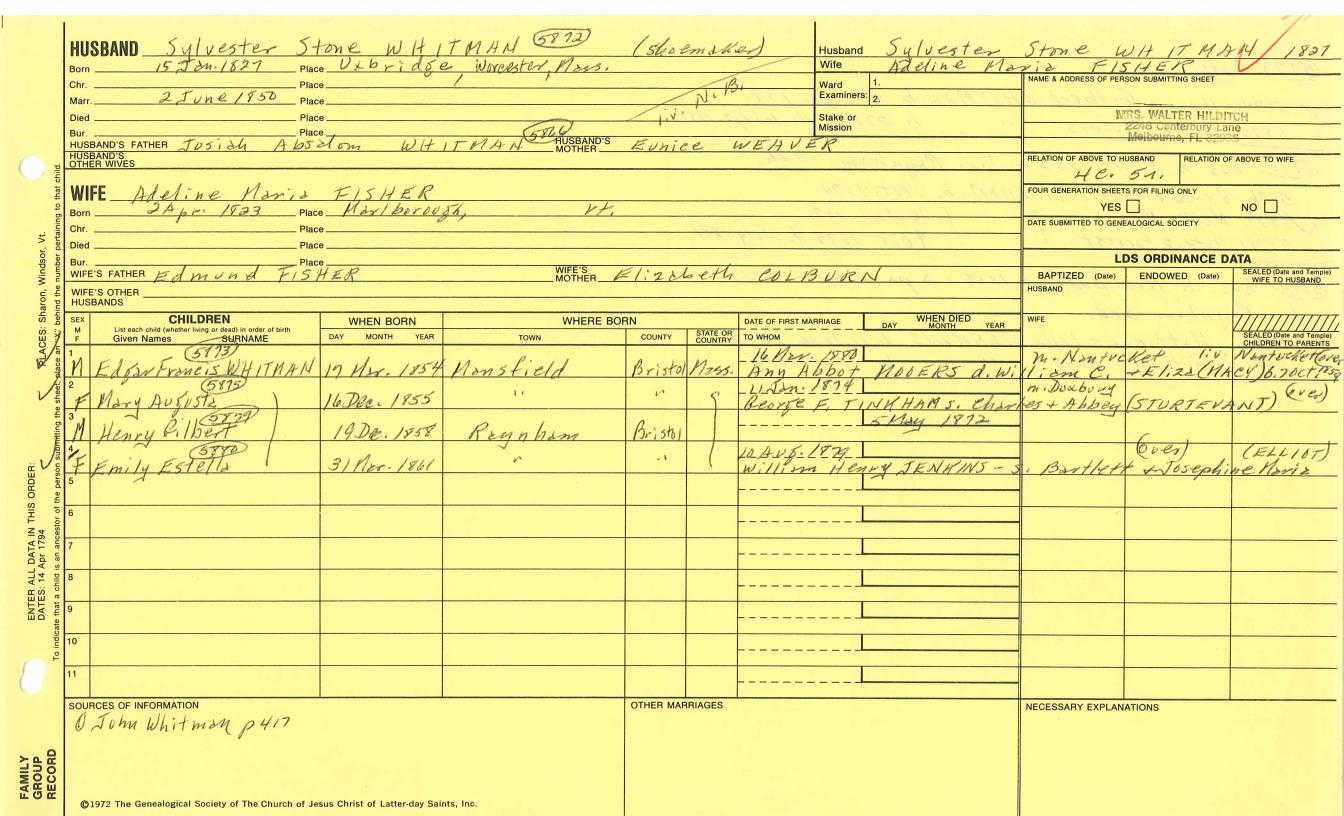 HUSBAND Sylvester Stone WHITMAN 5872 (shoemaker)
Born 15 Jan. 1827 Place Uxbridge, Worcester, Mass.
Chr. Place
Marr. 2 June 1850 Place liv. N.B.
Died Place
Bur. Place
HUSBAND'S FATHER Josiah Absalom WHITMAN HUSBAND'S MOTHER Eunice WEAVER
HUSBAND'S OTHER WIVES
WIFE Adeline Maria FISHER
Born 2 Apr. 1823 Place Marlborough, Vt.
Chr. Place
Died Place
Bur. Place
WIFE'S FATHER Edmund FISHER WIFE'S MOTHER Elizabeth COLBURN
WIFE'S OTHER HUSBANDS
Husband Sylvester Stone WHITMAN 1827
Wife Adeline Maria FISHER
Ward Examiners: 1. 2.
Stake or Mission
NAME & ADDRESS OF PERSON SUBMITTING SHEET
MRS. WALTER HILDITCH
Canterbury Lane
Melbourne, FL
RELATION OF ABOVE TO HUSBAND RELATION OF ABOVE TO WIFE
4C. 5r.
FOUR GENERATION SHEETS FOR FILING ONLY
YES NO
DATE SUBMITTED TO GENEALOGICAL SOCIETY
LDS ORDINANCE DATA
BAPTIZED (Date) ENDOWED (Date) SEALED (Date and Temple) WIFE TO HUSBAND
HUSBAND
WIFE
SEALED (Date and Temple) CHILDREN TO PARENTS
SEX M F CHILDREN WHEN BORN WHERE BORN DATE OF FIRST MARRIAGE WHEN DIED
List each child (whether living or dead) in order of birth
Given Names SURNAME DAY MONTH YEAR TOWN COUNTY STATE OR COUNTRY TO WHOM DAY MONTH YEAR
1 5873 16 Mar. 1880 m. Nantucket liv. Nantucket (over)
M Edgar Francis WHITMAN 17 Mar. 1854 Mansfield Bristol Mass. Ann Abbot MODERS d. William C. + Eliza (MACY)
2 5875 11 Jan. 1874 m. Duxbury (over)
F Mary Augusta 16 Dec. 1855 " " George F. TINKHAM s. Charles + Abbey (STURTEVANT)
3 5879 5 May 1872
M Henry Gilbert 19 Dec. 1858 Raynham Bristol
4 5880 10 Aug. 1879 (over) (ELLIOT)
F Emily Estella 31 Mar. 1861 " " William Henry JENKINS - s. Bartlett + Josephine Maria
5
6
7
8
9
10
11
SOURCES OF INFORMATION OTHER MARRIAGES NECESSARY EXPLANATIONS
① John Whitman p 417
©1972 The Genealogical Society of The Church of Jesus Christ of Latter-day Saints, Inc.
FAMILY GROUP RECORD
ENTER ALL DATA IN THIS ORDER:
DATES: 14 Apr 1794
PLACES: Sharon, Windsor, Vt.
To indicate that a child is an ancestor of the person submitting the sheet, place an behind the number pertaining to that child.